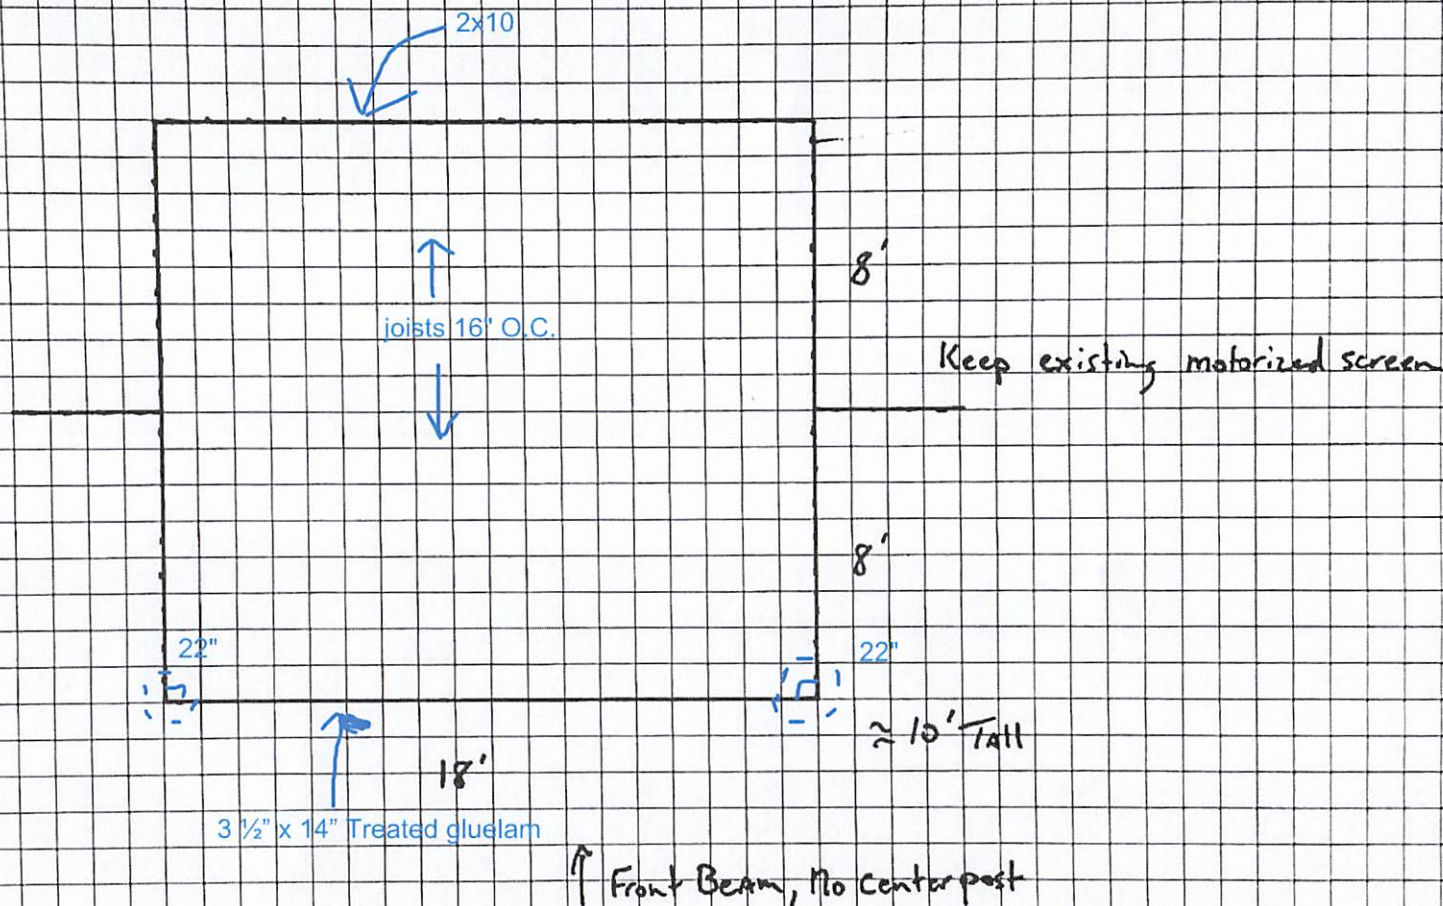 2x10
8'
joists 16" O.C.
Keep existing motorized screen
8'
22"
22"
≈ 10' Tall
18'
3 ½" x 14" Treated gluelam
↑ Front Beam, No center post